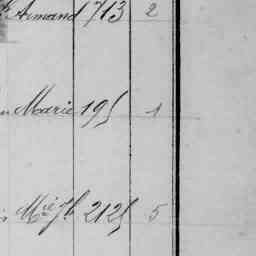 Armand 713 2
Marie 195 1
Mie Jh 2125 5